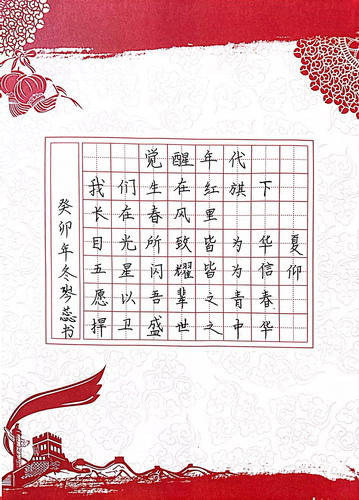 觉醒年代
我们生在红旗下
长在春风里
目光所致皆为华夏
五星闪耀皆为信仰
愿以吾辈之青春
捍卫盛世之中华
癸卯年冬琴蕊书